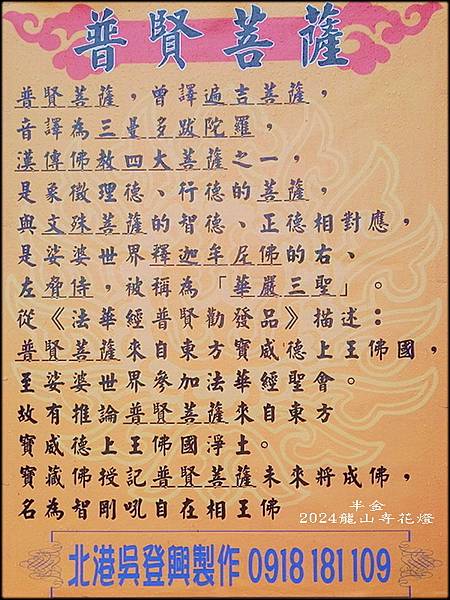 普賢菩薩
普賢菩薩，曾譯遍吉菩薩，
音譯為三曼多跋陀羅，
漢傳佛教四大菩薩之一，
是象徵理德、行德的菩薩，
與文殊菩薩的智德、正德相對應，
是娑婆世界釋迦牟尼佛的右、
左脅侍，被稱為「華嚴三聖」。
從《法華經普賢勸發品》描述：
普賢菩薩來自東方寶威德上王佛國，
至娑婆世界參加法華經聖會。
故有推論普賢菩薩來自東方
寶威德上王佛國淨土。
寶藏佛授記普賢菩薩未來將成佛，
名為智剛吼自在相王佛
半金
2024龍山寺花燈
北港吳登興製作 0918 181 109